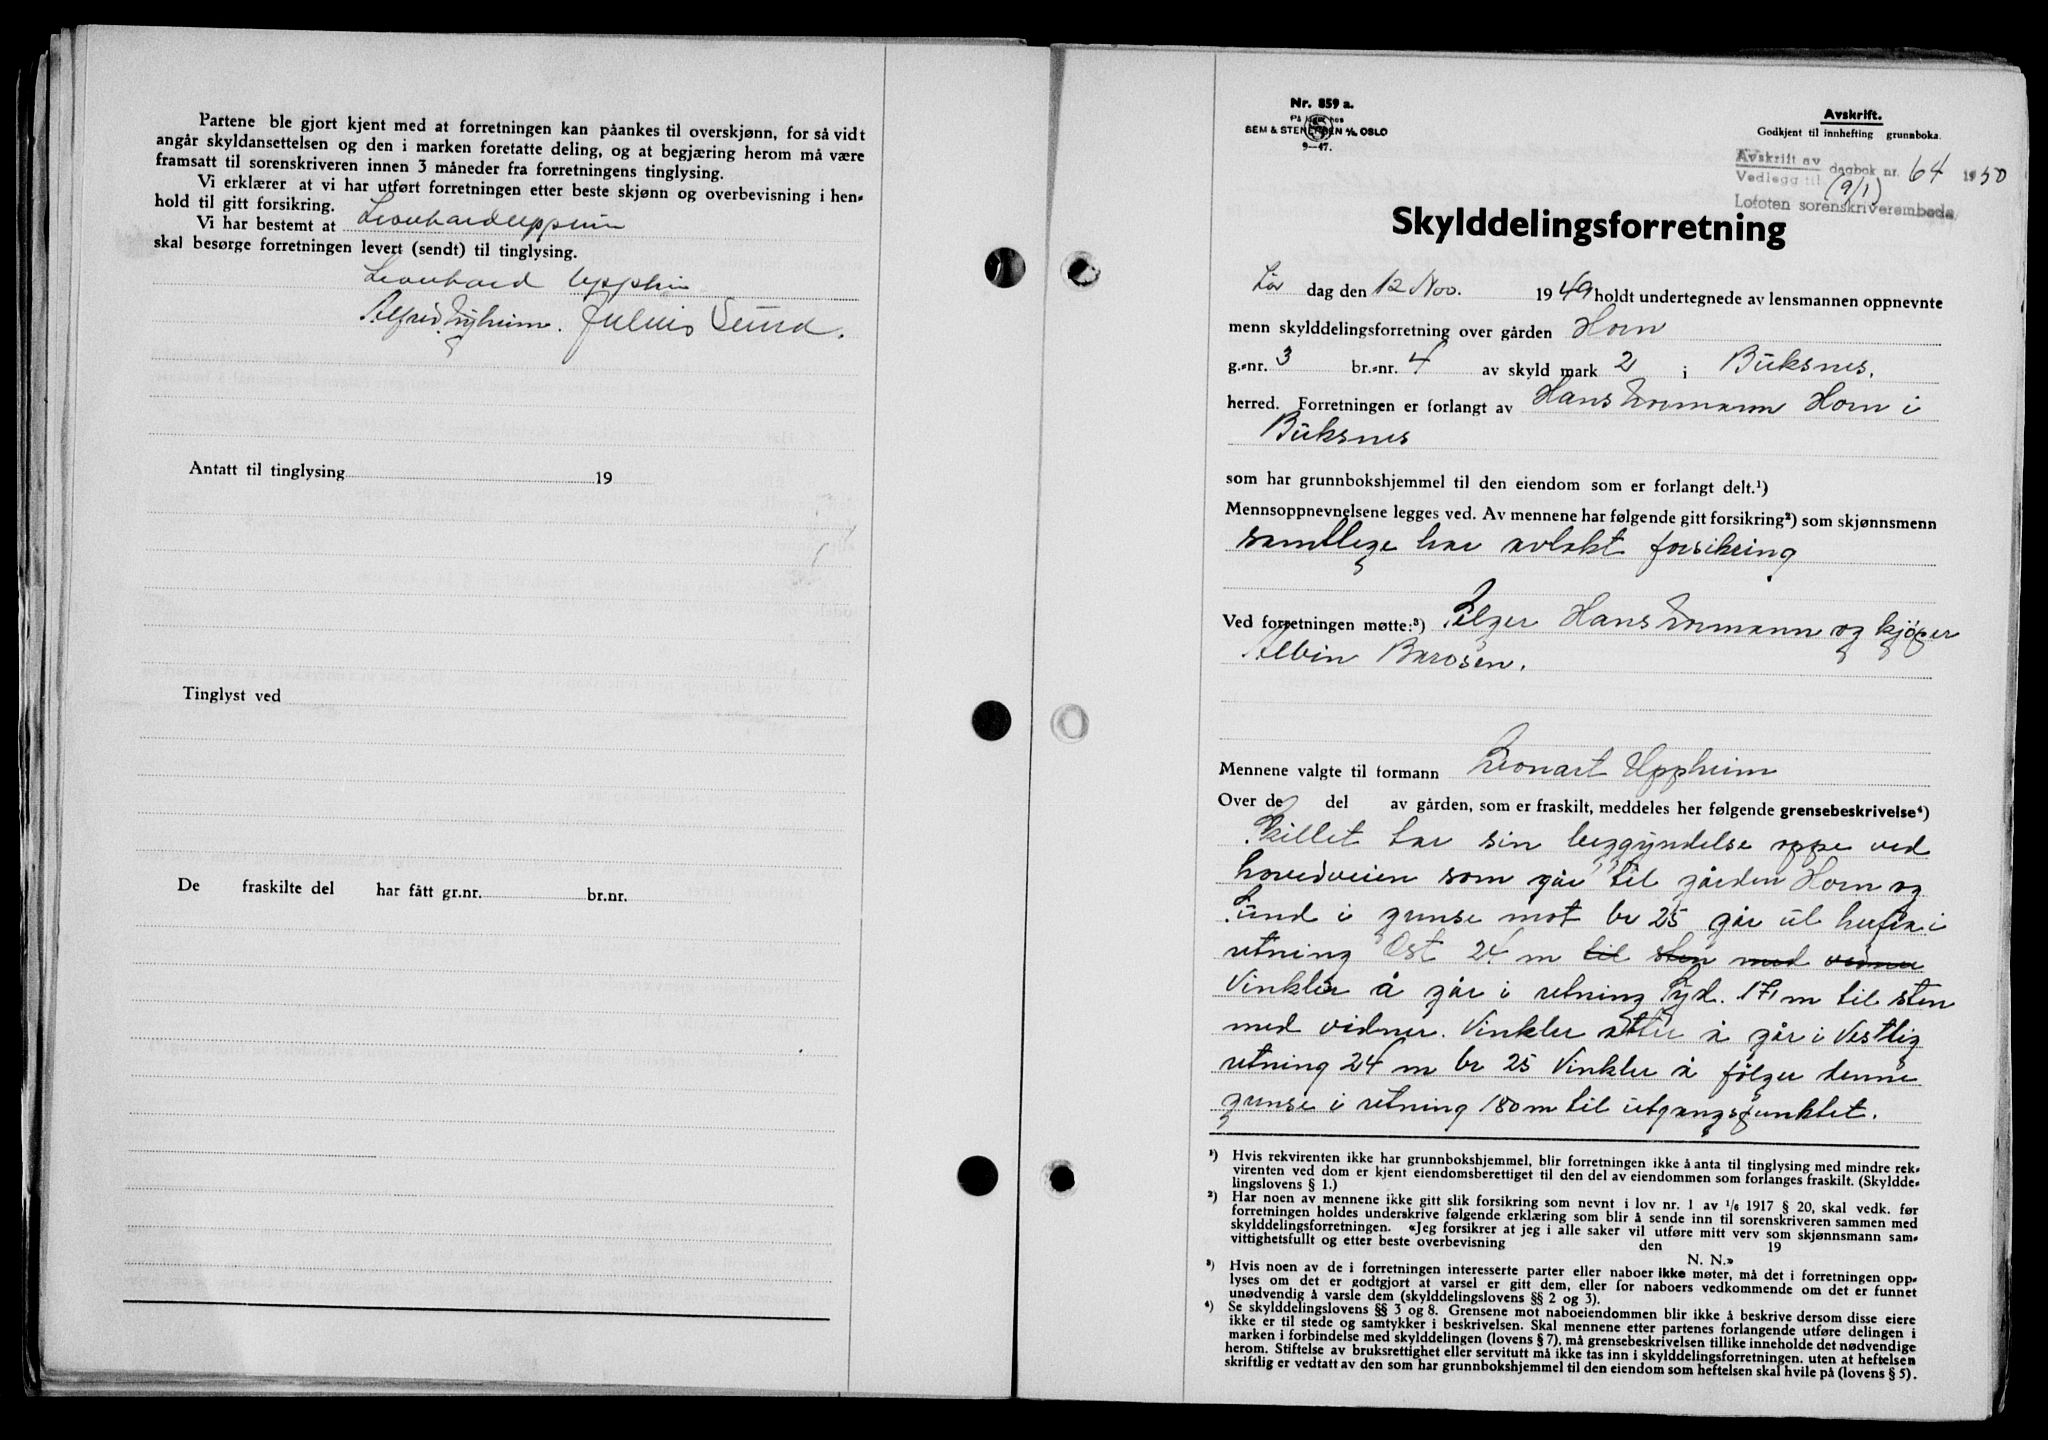 Partene ble gjort kjent med at forretningen kan påankes til overskjønn, for så vidt
angår skyldansettelsen og den i marken foretatte deling, og at begjæring herom må være
framsatt til sorenskriveren innen 3 måneder fra forretningens tinglysing.
Vi erklærer at vi har utført forretningen etter beste skjønn og overbevisning i hen-
hold til gitt forsikring.
Vi har bestemt at Leonhard Uppheim
skal besørge forretningen levert (sendt) til tinglysing.
Leonhard Uppheim
Alfred Nyheim. Julius Sund.
Antatt til tinglysing 19
Tinglyst ved
De fraskilte del har fått gr.nr. br.nr.
Nr. 859 a.
På lager hos
SEM & STENERSEN A/S OSLO
9—47.
Avskrift.
Godkjent til innhefting grunnboka.
Avskrift av
Vedlegg til dagbok nr. 64 1950
(9/1)
Lofoten sorenskriverembede
Skylddelingsforretning
Lør dag den 12 Nov. 1949 holdt undertegnede av lensmannen oppnevnte
menn skylddelingsforretning over gården Horn
g.-nr. 3 br.-nr. 4 av skyld mark 2 i Buksnes.
herred. Forretningen er forlangt av Hans Normann Horn i
Buksnes
som har grunnbokshjemmel til den eiendom som er forlangt delt.¹)
Mennsoppnevnelsene legges ved. Av mennene har følgende gitt forsikring²) som skjønnsmenn
samtlege har avlakt forsikring
Ved forretningen møtte:³) Selger Hans Normann og kjøper
Albin Barosen.
Mennene valgte til formann Leonart Uppheim
Over de del av gården, som er fraskilt, meddeles her følgende grensebeskrivelse⁴)
Skillet tar sin begyndelse oppe ved
hovedveien som går til gården Horn og
Sund i grense mot br 25 går ut herfra i
retning Øst 24 m til sten med vidner
Vinkler å går i retning Syd. 171 m til sten
med vidner. Vinkler atter å går i Vestlig
retning 24 m br 25 Vinkler å følger denne
grense i retning 180 m til utgangspunktet.
¹) Hvis rekvirenten ikke har grunnbokshjemmel, blir forretningen ikke å anta til tinglysing med mindre rek-
virenten ved dom er kjent eiendomsberettiget til den del av eiendommen som forlanges fraskilt. (Skyldde-
lingslovens § 1.)
²) Har noen av mennene ikke gitt slik forsikring som nevnt i lov nr. 1 av 1/6 1917 § 20, skal vedk. før
forretningen holdes underskrive følgende erklæring som blir å sende inn til sorenskriveren sammen med
skylddelingsforretningen. «Jeg forsikrer at jeg i alle saker vil utføre mitt verv som skjønnsmann sam-
vittighetsfullt og etter beste overbevisning den 19
N. N.»
³) Hvis noen av de i forretningen interesserte parter eller naboer ikke møter, må det i forretningen opp-
lyses om det er godtgjort at varsel er gitt dem, eller for naboers vedkommende om det er funnet
unødvendig å varsle dem (skylddelingslovens §§ 2 og 3).
⁴) Se skylddelingslovens §§ 3 og 8. Grensene mot naboeiendommen blir ikke å beskrive dersom disse eiere
ikke er til stede og samtykker i beskrivelsen. Skal mennene etter partenes forlangende utføre delingen i
marken i forbindelse med skylddelingen (lovens § 7), må grensebeskrivelsen tillike inneholde det nødvendige
herom. Stiftelse av bruksrettighet eller servitutt må ikke tas inn i skylddelingsforretningen. uten at heftelsen
skriftlig er vedtatt av den som har grunnbokshjemmel til den eiendom som heftelsen skal hvile på (lovens § 5).